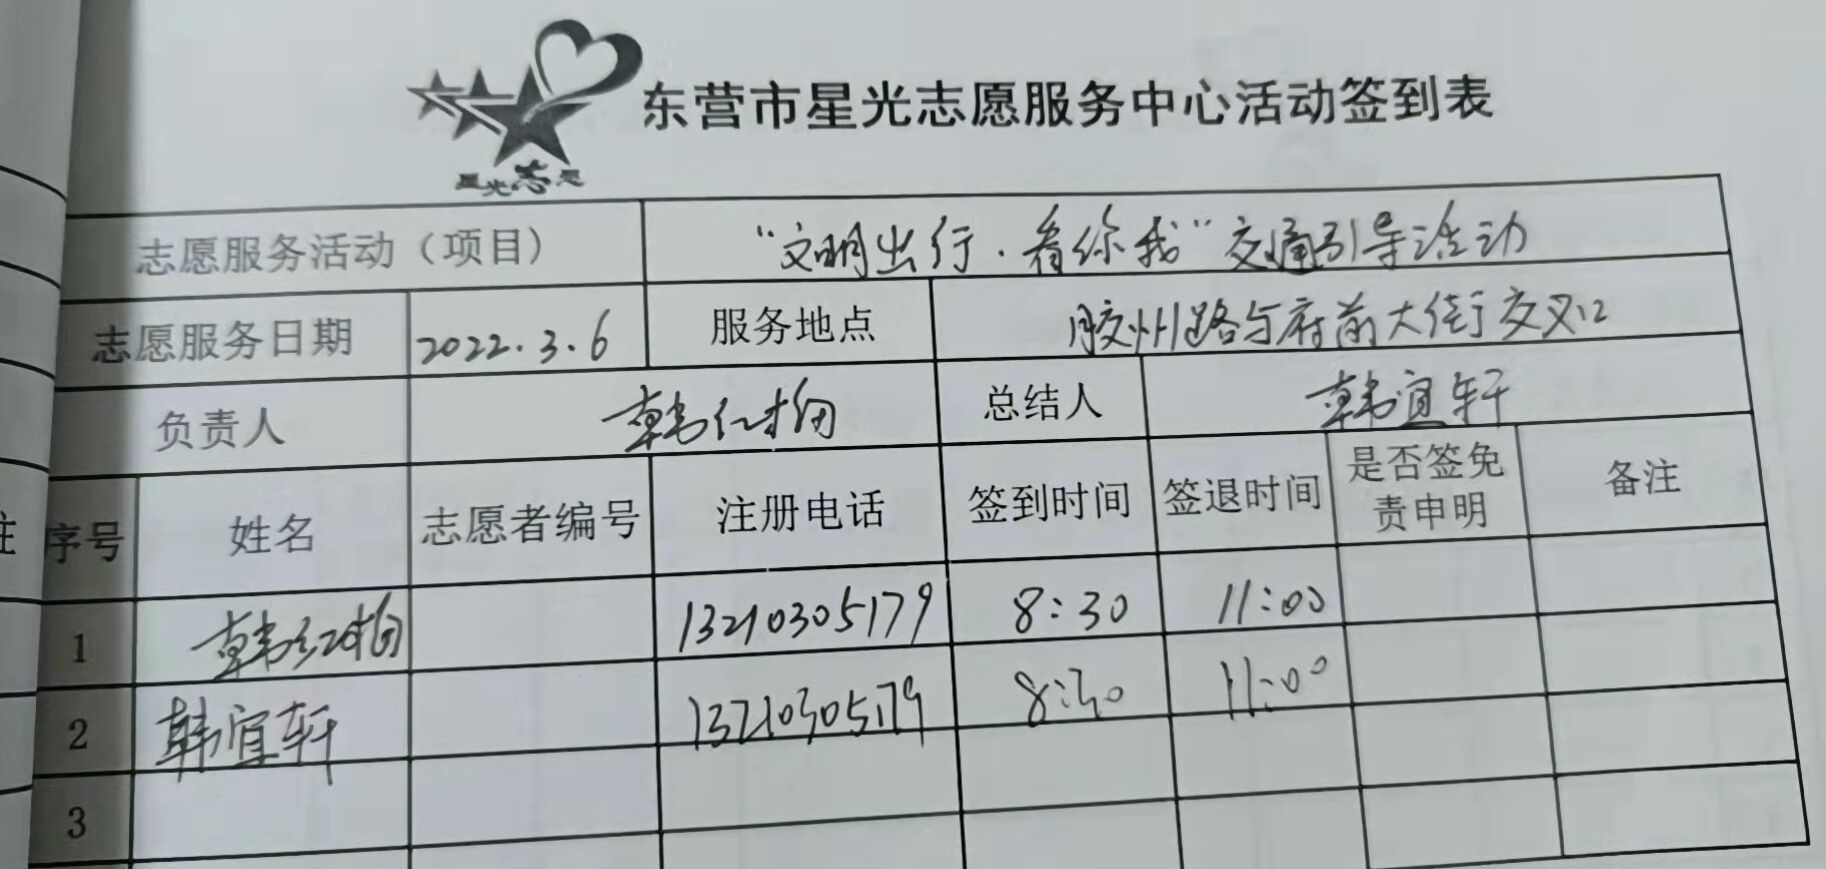 东营市星光志愿服务中心活动签到表
星光志愿
志愿服务活动（项目） “文明出行·看你我”交通引导活动
志愿服务日期 2022.3.6 服务地点 胶州路与府前大街交叉口
负责人 韩红梅 总结人 韩宜轩
序号 姓名 志愿者编号 注册电话 签到时间 签退时间 是否签免
责申明 备注
1 韩红梅 13210305179 8:30 11:00
2 韩宜轩 13210305179 8:30 11:00
3
注